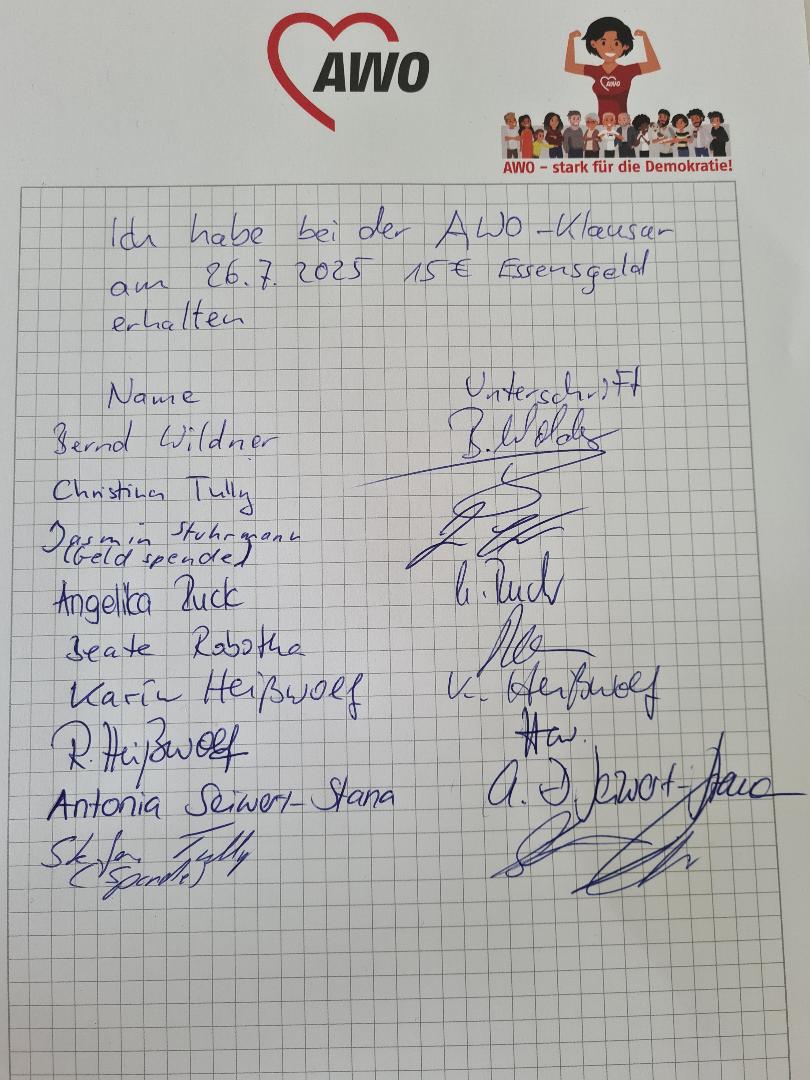 AWO
AWO
AWO – stark für die Demokratie!
Ich habe bei der AWO-Klausur
am 26.7.2025 15€ Essensgeld
erhalten
Name Unterschrift
Bernd Wildner B.
Christina Tully
Jasmin Stuhrmann
(Geld spende)
Angelika Puck A. Puck
Beate Robotha
Karin Heißwolf K. Heißwolf
R. Heißwolf Hw.
Antonia Seiwert-Stana A. Seiwert-Stana
Stefan Tully
(Spende)